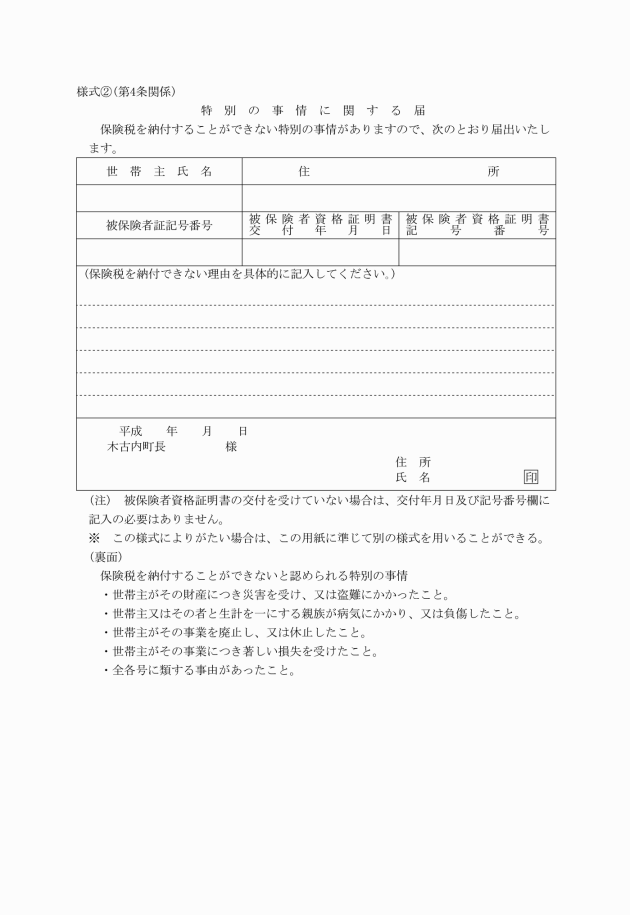 様式②(第4条関係)
特別の事情に関する届
保険税を納付することができない特別の事情がありますので、次のとおり届出いたし
ます。
世帯主氏名 住所
被保険者証記号番号 被保険者資格証明書交付年月日 被保険者資格証明書記号番号
(保険税を納付できない理由を具体的に記入してください。)
平成 年 月 日
木古内町長 様
住所
氏名 印
(注) 被保険者資格証明書の交付を受けていない場合は、交付年月日及び記号番号欄に
記入の必要はありません。
※ この様式によりがたい場合は、この用紙に準じて別の様式を用いることができる。
(裏面)
保険税を納付することができないと認められる特別の事情
・世帯主がその財産につき災害を受け、又は盗難にかかったこと。
・世帯主又はその者と生計を一にする親族が病気にかかり、又は負傷したこと。
・世帯主がその事業を廃止し、又は休止したこと。
・世帯主がその事業につき著しい損失を受けたこと。
・全各号に類する事由があったこと。